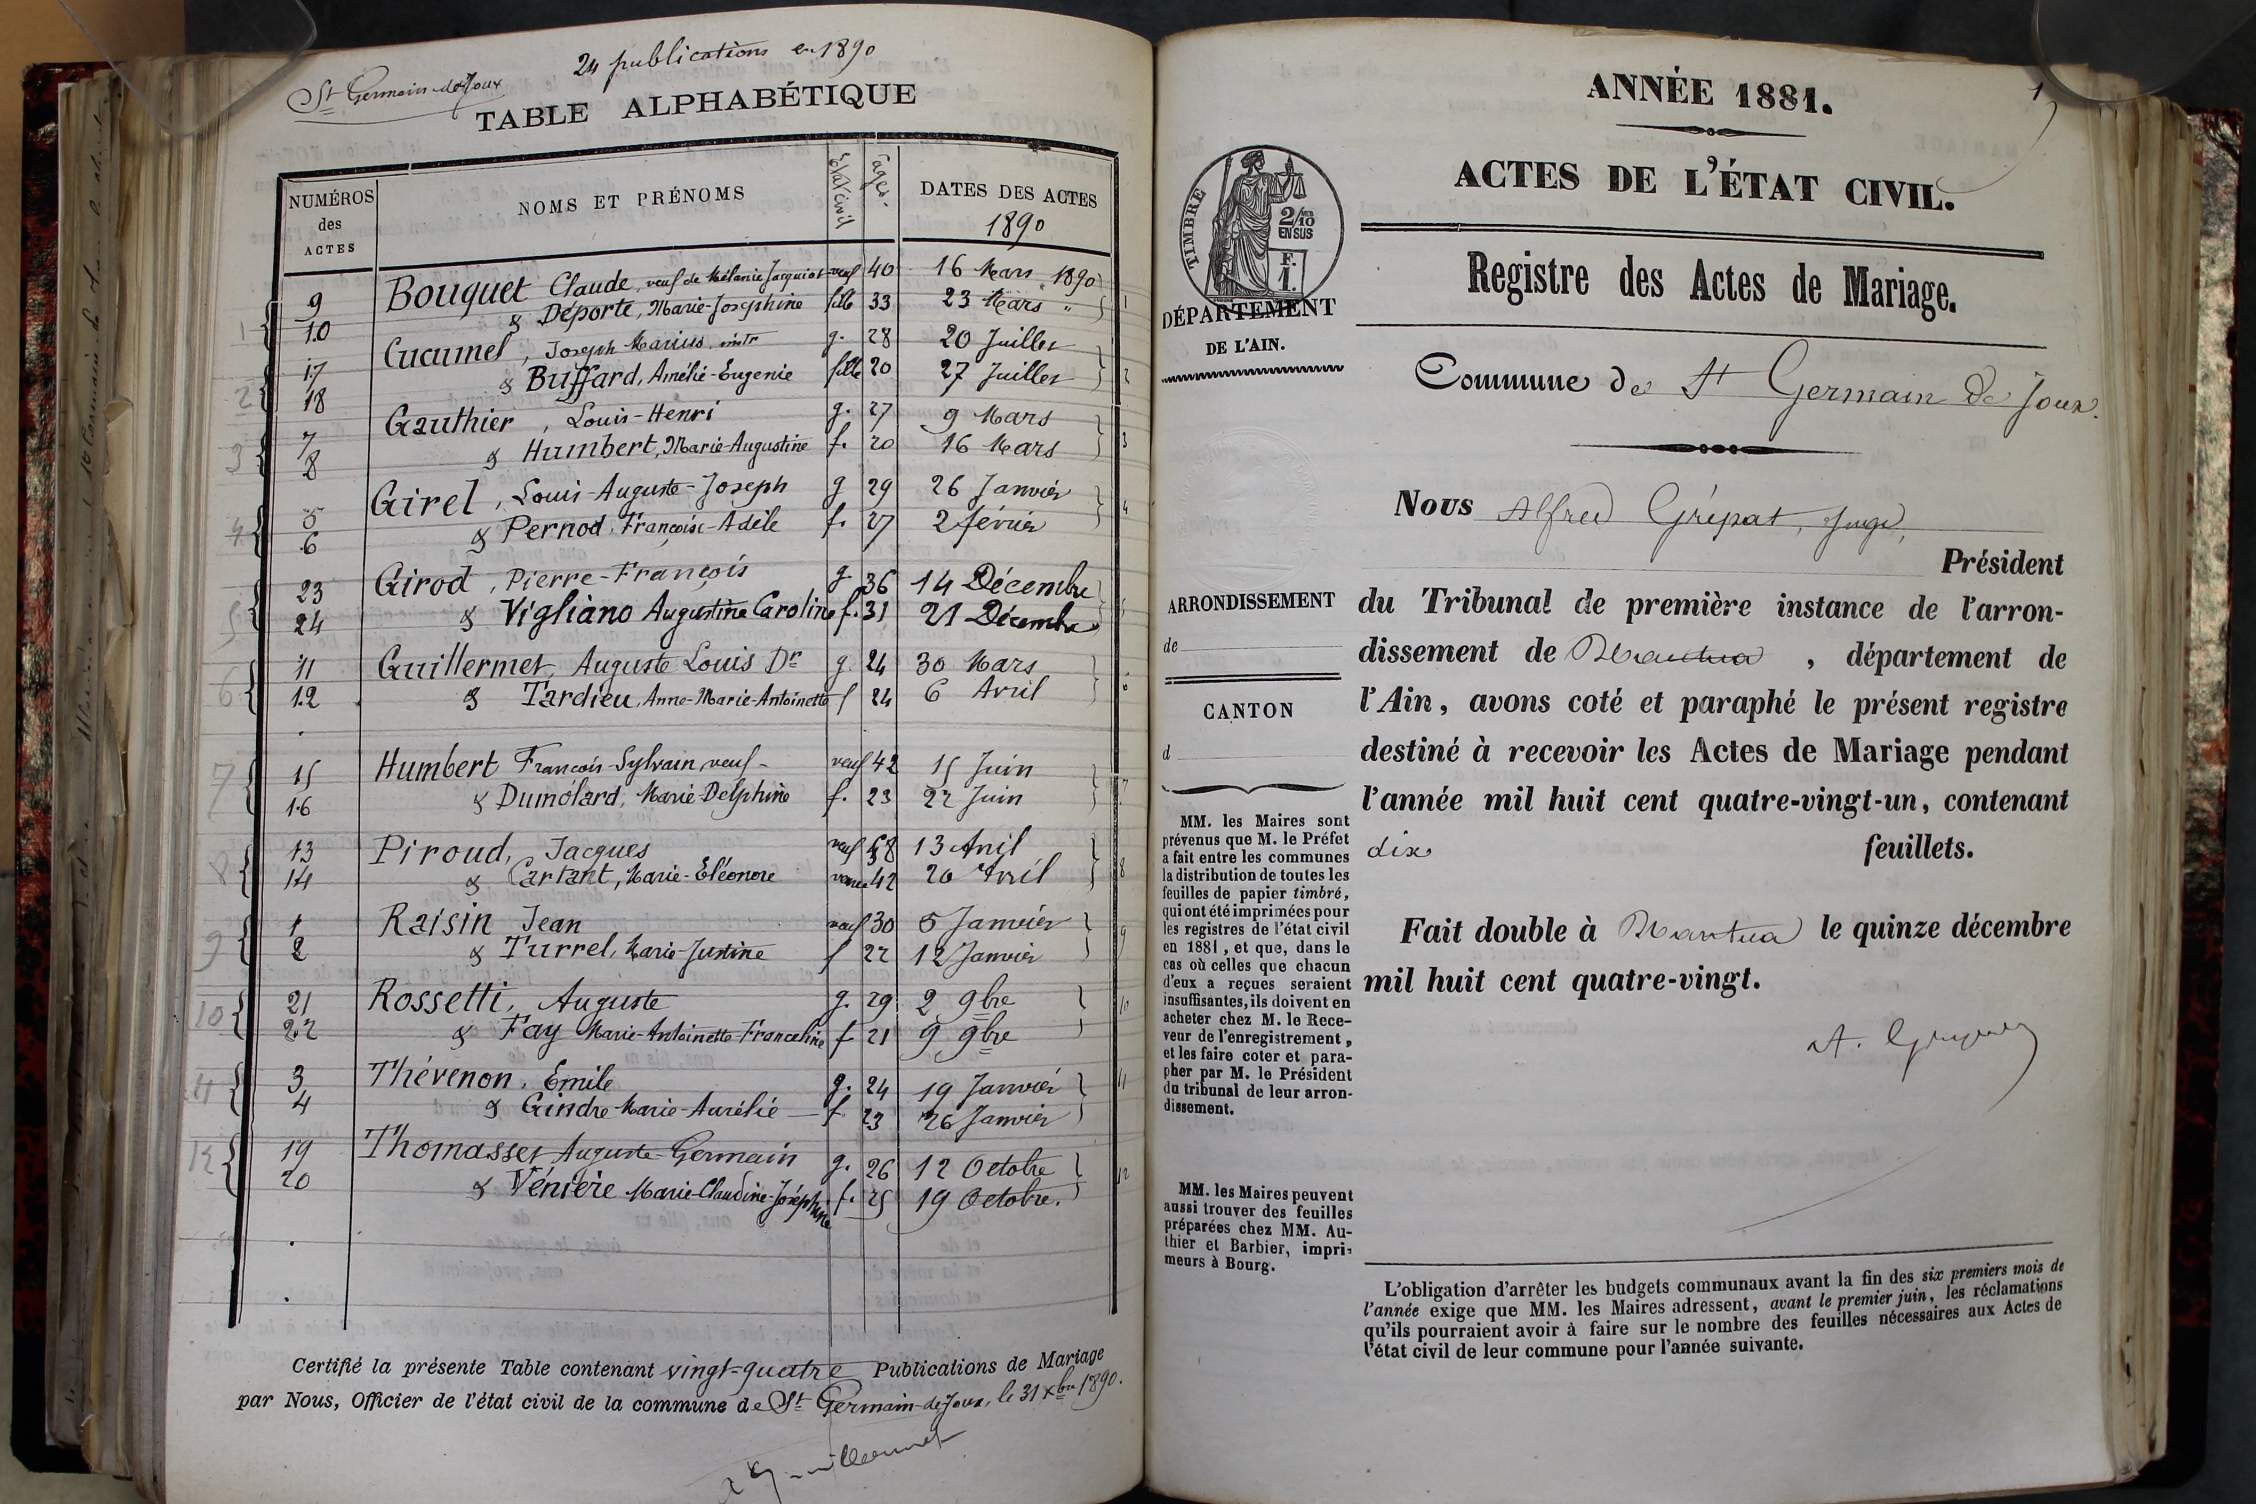 24 publications en 1890
St Germain-de-Joux
TABLE ALPHABÉTIQUE
NUMÉROS des ACTES
NOMS ET PRÉNOMS
Etat civil
Ages
DATES DES ACTES
1890
9 Bouquet Claude, veuf de Mélanie Jacquiot veuf 40 16 Mars 1890
1 10 & Déporte, Marie-Josephine fille 33 23 Mars " 1
17 Cucumel, Joseph Marius g. 28 20 Juillet
2 18 & Buffard, Amélie-Eugenie fille 20 27 Juillet 2
7 Gauthier, Louis-Henri g. 27 9 Mars
3 8 & Humbert, Marie-Augustine f. 20 16 Mars 3
5 Girel, Louis-Auguste-Joseph g 29 26 Janvier
4 6 & Pernod, Françoise-Adèle f. 27 2 février 4
23 Girod, Pierre-François g 36 14 Décembre
5 24 & Vigliano Augustine Caroline f. 31 21 Décembre 5
11 Guillermet, Auguste Louis Dr g. 24 30 Mars
6 12 & Tardieu, Anne-Marie-Antoinette f 24 6 Avril 6
15 Humbert François-Sylvain, veuf - veuf 42 15 Juin
7 16 & Dumolard, Marie-Delphine f. 23 22 Juin 7
13 Piroud, Jacques veuf 58 13 Avril
8 14 & Cartant, Marie-Eléonore veuve 42 20 Avril 8
1 Raisin Jean veuf 30 5 Janvier
9 2 & Turrel, Marie-Justine f 22 12 Janvier 9
21 Rossetti, Auguste g. 29 2 9bre
10 22 & Fay Marie-Antoinette-Franceline f 21 9 9bre 10
3 Thévenon, Emile g. 24 19 Janvier
11 4 & Gindre Marie-Aurélie f 23 26 Janvier 11
19 Thomasset Auguste-Germain g. 26 12 Octobre
12 20 & Vénière Marie-Claudine-Joséphine f. 25 19 Octobre. 12
Certifié la présente Table contenant vingt-quatre Publications de Mariage
par Nous, Officier de l'état civil de la commune de St Germain-de-Joux, le 31 Xbre 1890.
1
ANNÉE 1881.
ACTES DE L'ÉTAT CIVIL.
TIMBRE
2/10 EN SUS
F. 1.
DÉPARTEMENT
DE L'AIN.
Registre des Actes de Mariage.
Commune de St Germain de Joux.
Nous Alfred Grépat, Juge,
Président
du Tribunal de première instance de l'arron-
dissement de Nantua, département de
l'Ain, avons coté et paraphé le présent registre
destiné à recevoir les Actes de Mariage pendant
l'année mil huit cent quatre-vingt-un, contenant
dix feuillets.
Fait double à Nantua le quinze décembre
mil huit cent quatre-vingt.
ARRONDISSEMENT
de
CANTON
d
MM. les Maires sont
prévenus que M. le Préfet
a fait entre les communes
la distribution de toutes les
feuilles de papier timbré,
qui ont été imprimées pour
les registres de l'état civil
en 1881, et que, dans le
cas où celles que chacun
d'eux a reçues seraient
insuffisantes, ils doivent en
acheter chez M. le Rece-
veur de l'enregistrement,
et les faire coter et para-
pher par M. le Président
du tribunal de leur arron-
dissement.
MM. les Maires peuvent
aussi trouver des feuilles
préparées chez MM. Au-
thier et Barbier, impri-
meurs à Bourg.
L'obligation d'arrêter les budgets communaux avant la fin des six premiers mois de
l'année exige que MM. les Maires adressent, avant le premier juin, les réclamations
qu'ils pourraient avoir à faire sur le nombre des feuilles nécessaires aux Actes de
l'état civil de leur commune pour l'année suivante.